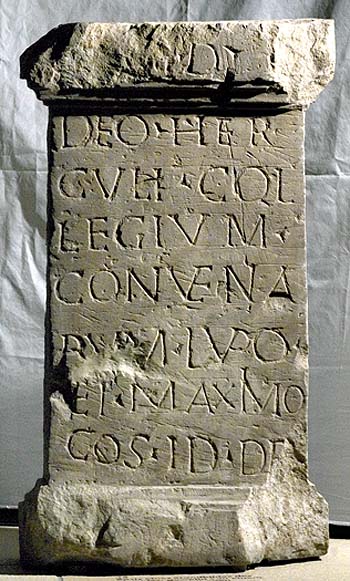 DI
DEO · HER
CVLI · COL
LEGIVM ·
CONVENA
RVM · LVPO ·
ET · MAXMO
COS · ID · DE